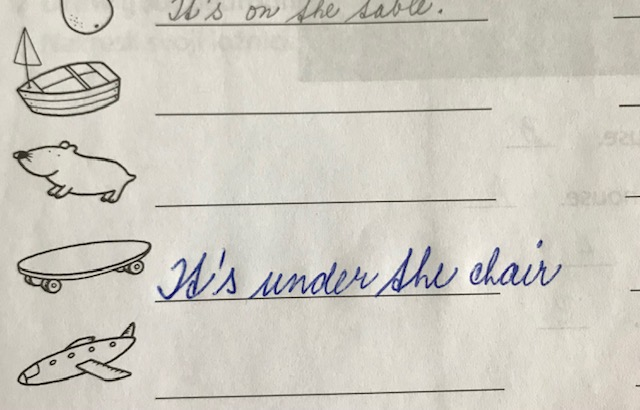 It's on the table.
It's under the chair